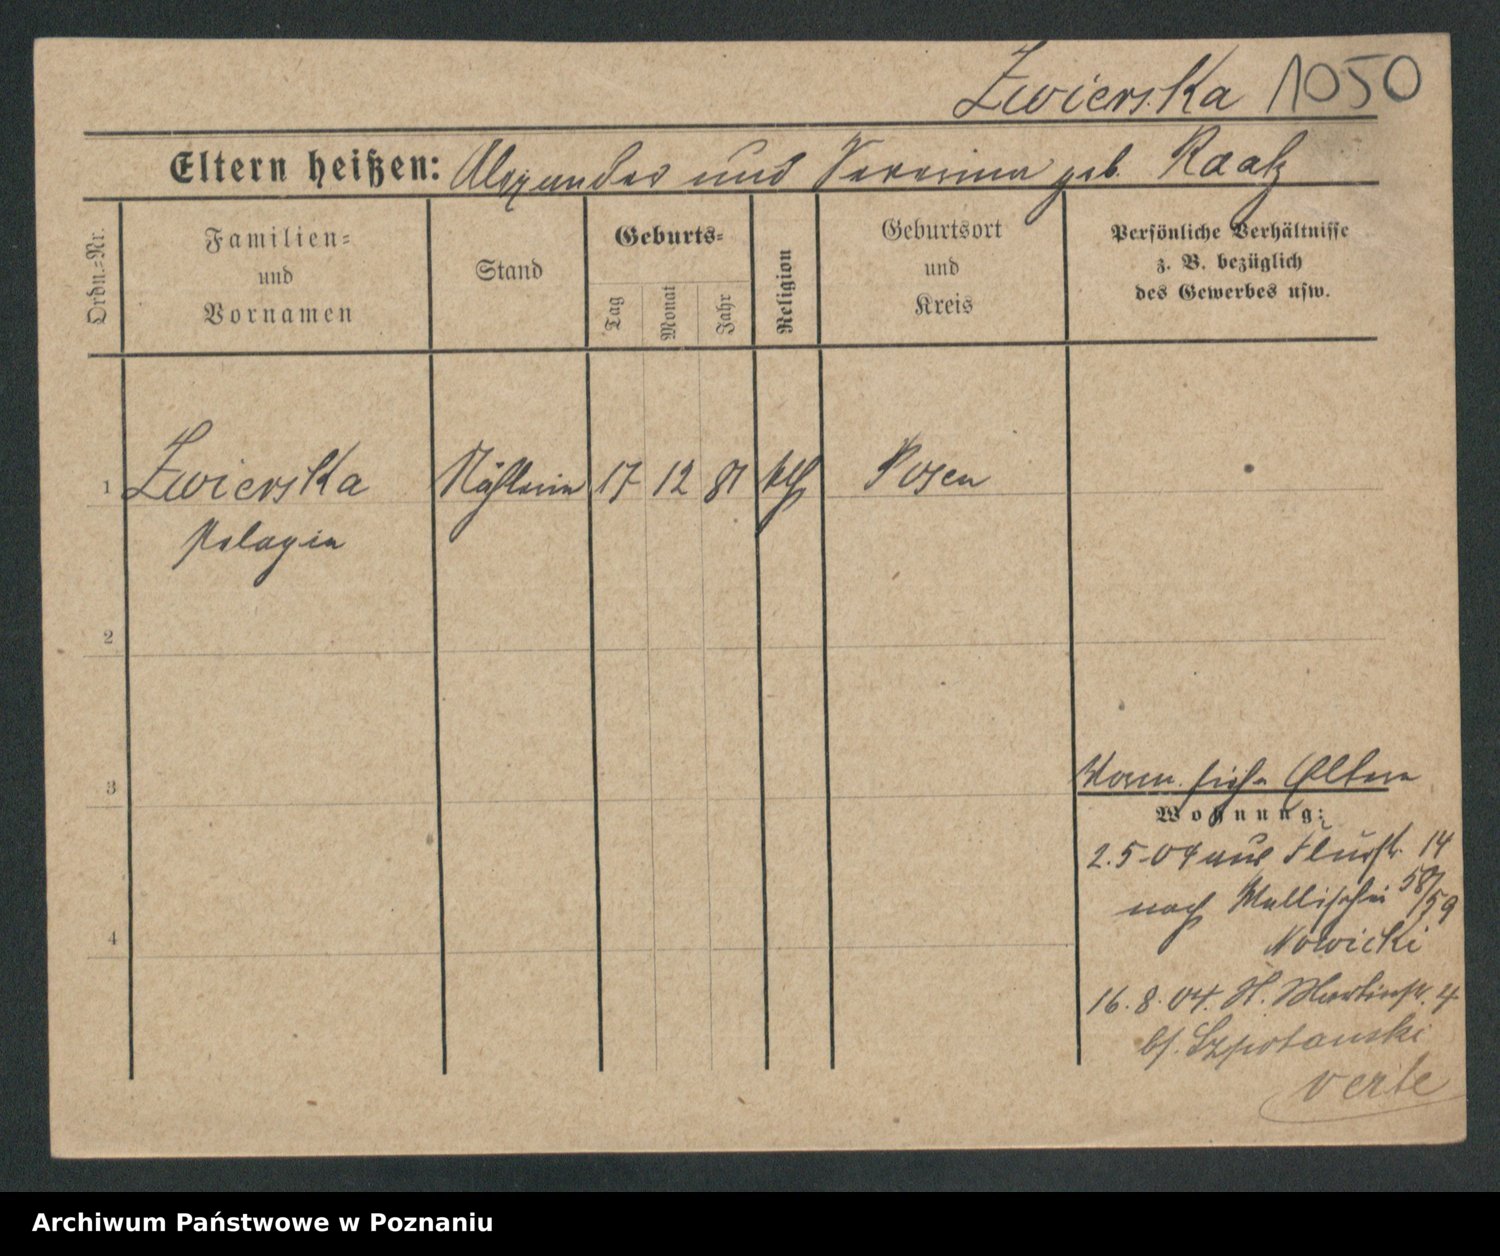 Zwierska 1050
Eltern heißen: Alexander und Severina geb. Raatz
Ordn.-Nr.
Familien-
und
Vornamen
Stand
Geburts-
Tag
Monat
Jahr
Religion
Geburtsort
und
Kreis
Persönliche Verhältnisse
z. B. bezüglich
des Gewerbes usw.
1 Zwierska Nähterin 17 12 81 kth Posen
Pelagia
2
3
4
Vorm. siehe Eltern
Wohnung:
2.5.04 aus Flurstr. 14
nach Wallischei 58/59
Nowicki
16.8.04. St. Martinstr. 4
bf. Szpotanski
verte
Archiwum Państwowe w Poznaniu